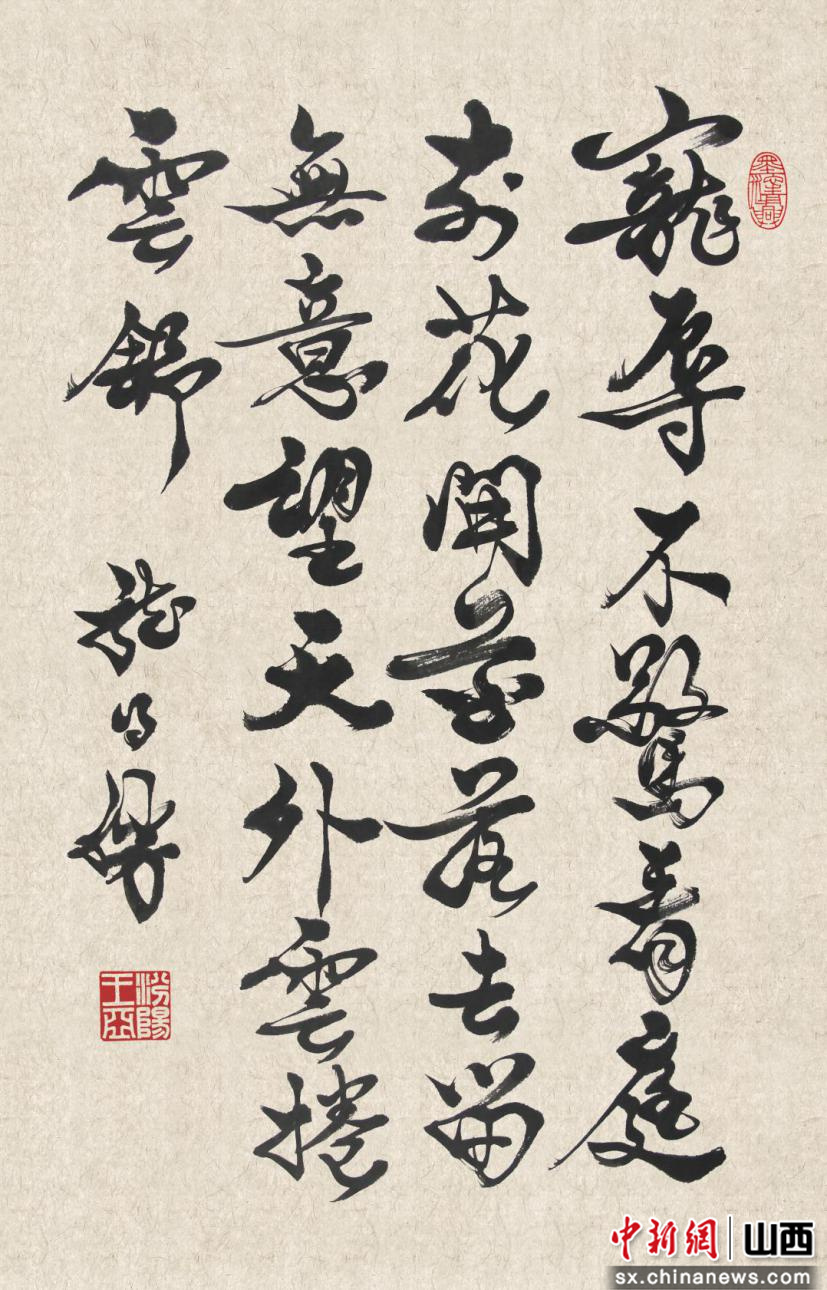 寵辱不驚看庭
前花開花落去留
無意望天外雲捲
雲舒
汾陽
王
中新網 山西
sx.chinanews.com